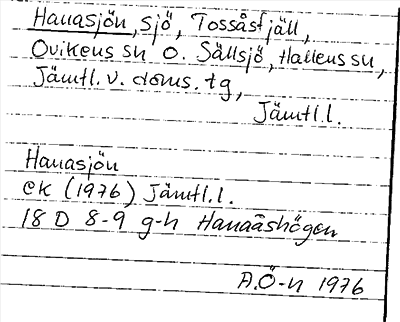 Hanasjön, sjö, Tossåsfjäll,
Ovikens sn o. Sällsjö, Hallens sn,
Jämtl. v. doms. tg,
Jämtl. l.
Hanasjön
EK (1976) Jämtl. l.
18 D 8-9 g-h Hanaåshögen
A.Ö-n 1976